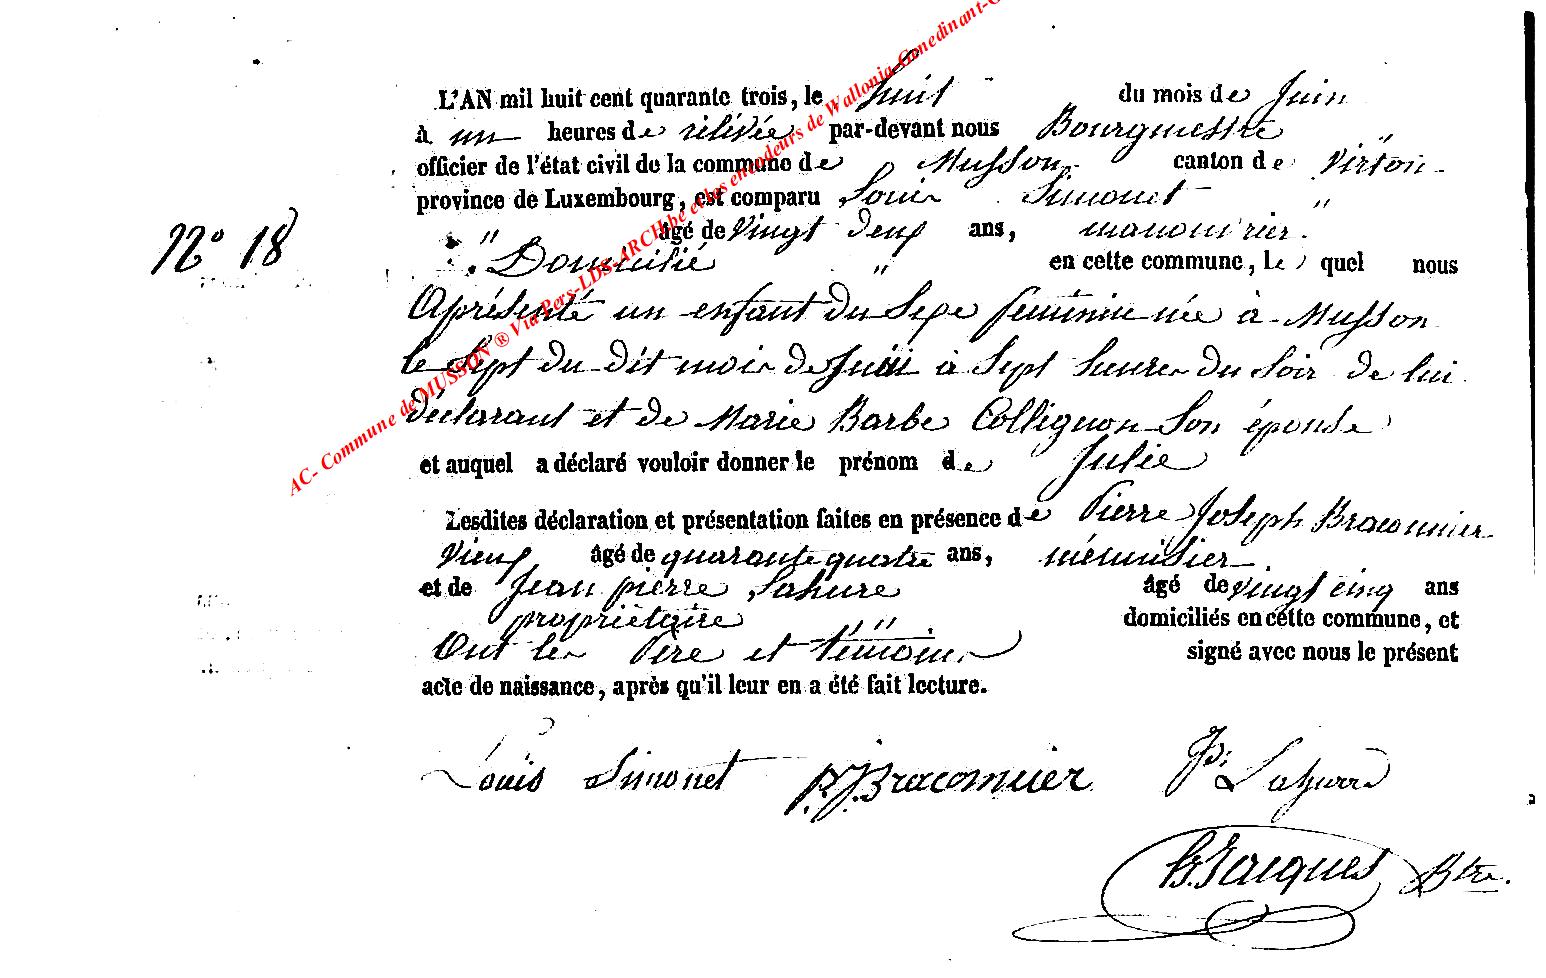 L'AN mil huit cent quarante trois, le huit du mois de Juin
à un heures de rélévée par-devant nous Bourgmestre "
officier de l'état civil de la commune de Musson canton de Virton
province de Luxembourg, est comparu Louis Simonet "
" âgé de Vingt deux ans, manouvrier
N° 18
" Domicilié " en cette commune, le quel nous
a présenté un enfant du Sexe féminin née à Musson
le Sept du dit mois de Juin à Sept heures du Soir de lui
déclarant et de Marie Barbe Collignon Son épouse
et auquel a déclaré vouloir donner le prénom de Julie
Lesdites déclaration et présentation faites en présence de Pierre Joseph Braconnier
Vieux âgé de quarante quatre ans, ménuisier
et de Jean pierre Lahure âgé de vingt cinq ans
propriétaire domiciliés en cette commune, et
Ont les Père et témoins signé avec nous le présent
acte de naissance, après qu'il leur en a été fait lecture.
Louis Simonet P.J. Braconnier JP. Lahure
Jacques Btre.
AC- Commune de MUSSON ® Via Pers-LDS-ARCH.be et les encodeurs de Wallonia-Genedinant-